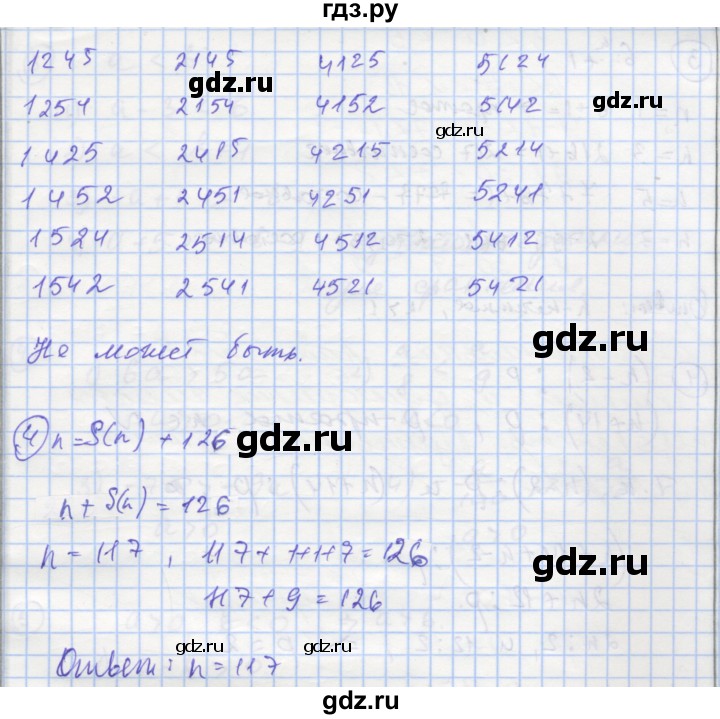 гдз.ру
1245 2145 4125 5124
1254 2154 4152 5142
1425 2415 4215 5214
1452 2451 4251 5241
1524 2514 4512 5412
1542 2541 4521 5421
Не может быть.
④ n=S(n) + 126
n + S(n) = 126
n = 117, 117+1+1+7=126
117+9=126
Ответ: n=117
gdz.ru
gdz.ru
gdz.ru
gdz.ru
gdz.ru
gdz.ru
gdz.ru
gdz.ru
gdz.ru
gdz.ru